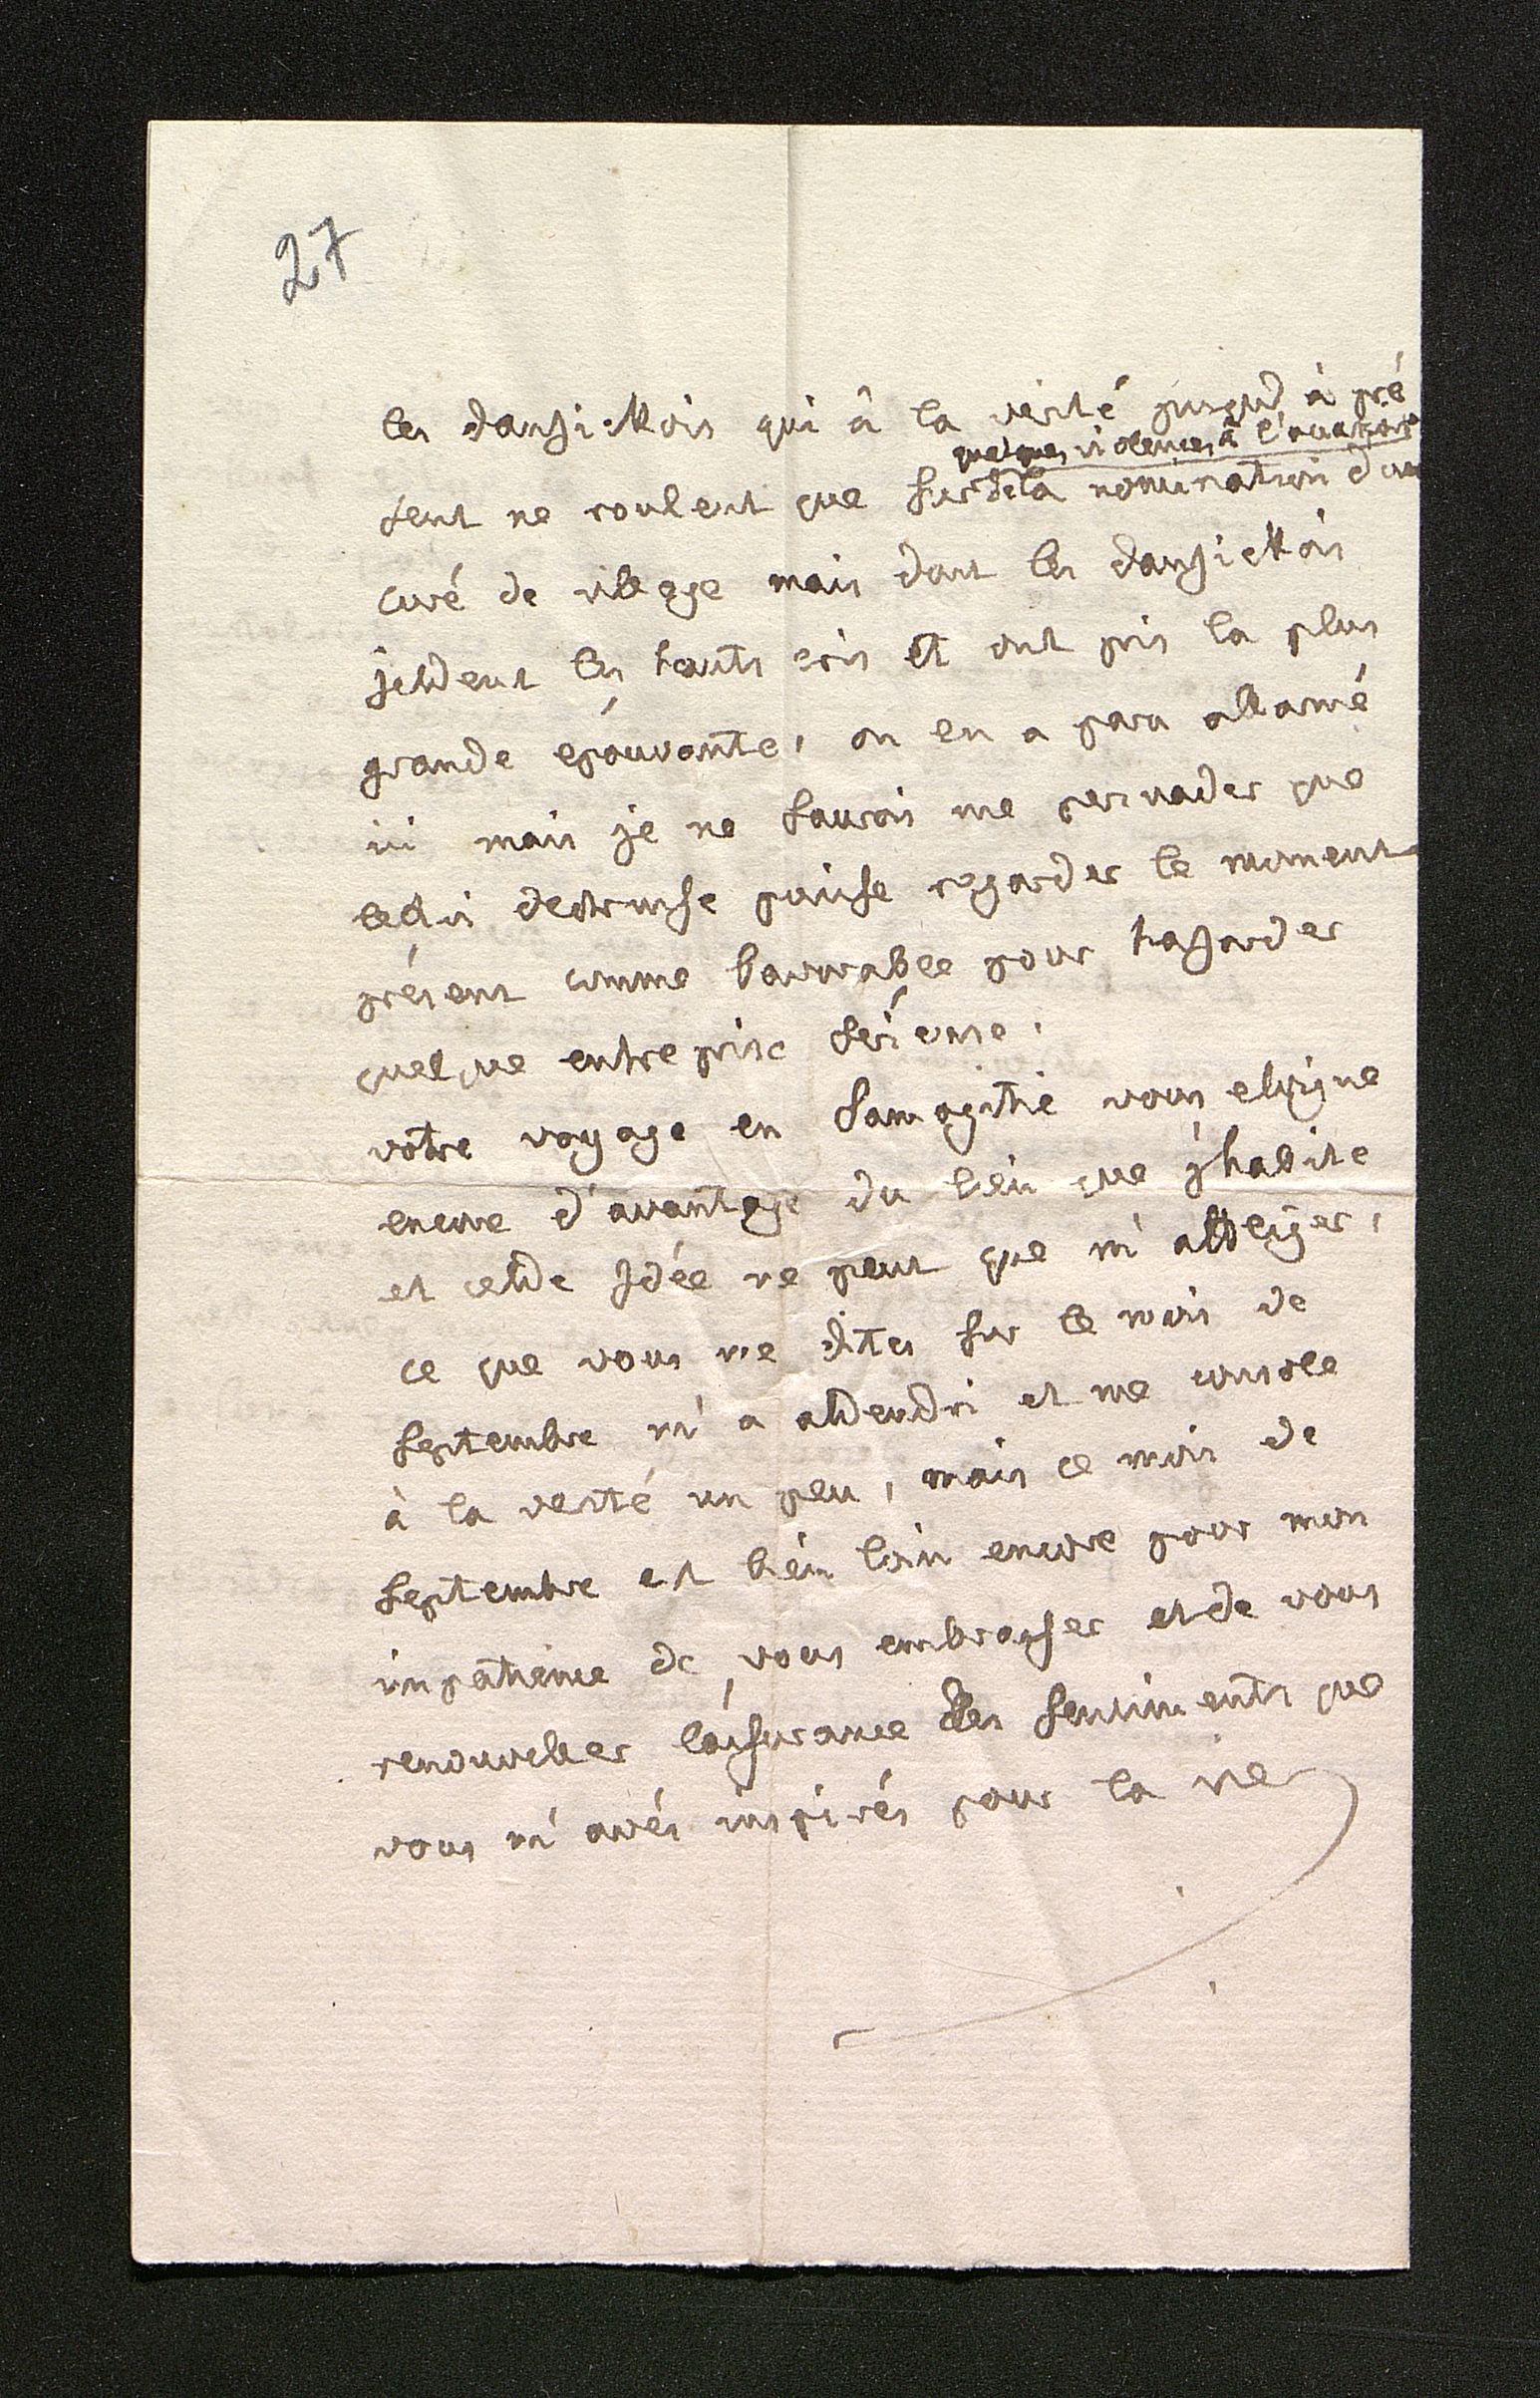 27
les dantzickois qui â la verité jusqu'à pré
quelques violences à l'occasion
sent ne roulent que sur de la nomination d'un
curé de village mais dont les dantzickois
jettent les hauts cris et ont pris la plus
grande epouvante, on en a paru allarmé
ici mais je ne saurois me persuader que
celui de prusse puisse regarder le moment
présent comme favorable pour hazarder
quelque entreprise sérieuse.
votre voyage en Samogitie vous eloigne
encore d'avantage du lieu que j'habite
et cette Idée ne peut que m'affliger,
ce que vous me dites sur le mois de
septembre m'a attendri et me console
à la verité un peu, mais ce mois de
septembre est bien loin encore pour mon
impatience de vous embrasser et de vous
renouveller l'assurance des sentiments que
vous m'avés inspirés pour la vie